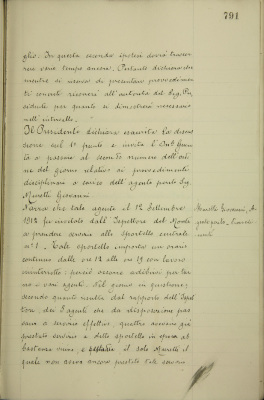 791
glio. In questa seconda ipotesi dovrà trascor-
rere vario tempo ancora. Pertanto dichiara che
mentre si riserva di presentare provvedimen-
ti concreti ricorrerà all'autorità del Sig. Pre-
sidente per quanto si dimostrerà necessario
nell'intervallo.
Il Presidente dichiara esaurita la discus-
sione sul 1° punto e invita l'On. Giun-
ta a passare al secondo numero dell'ordi-
ne del giorno relativo ai provvedimenti
disciplinari a carico dell'agente Sig.
Giovanni
Narra che tale agente il 12 Settembre
1912 fu invitato dall'Ispettore del
a prendere servizio allo sportello centrale
n° 1. Tale sportello importa un orario
continuo dalle ore 12 alle ore 19 con lavoro
ininterrotto: perciò vengono adibiti per tur-
no i vari agenti. Nel giorno in questione,
secondo quanto risulta dal rapporto dell'Ispet-
tore, dei 5 agenti che da disposizioni pas-
sano a servizio effettivo, quattro avevano già
prestato servizio a detto sportello in epoca ab-
bastanza vicina e il solo
quale non aveva ancora prestato tale servizio
Giovanni, A-